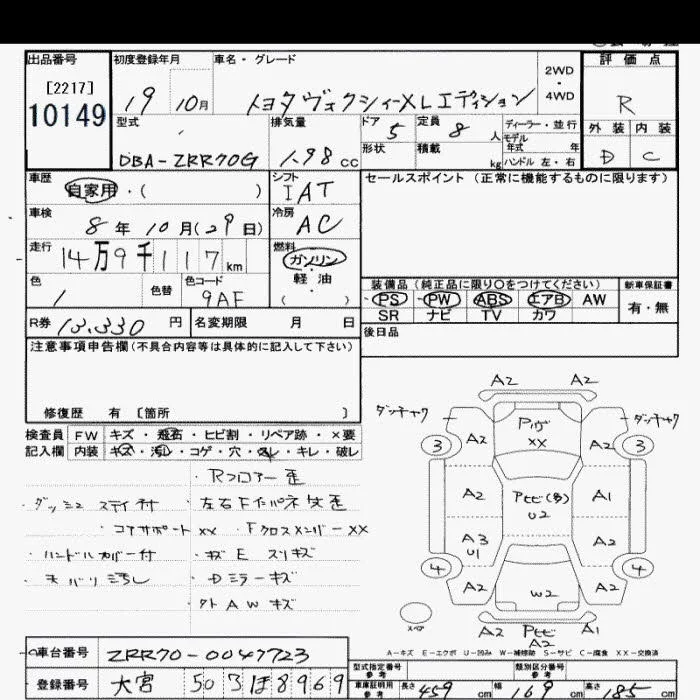 出品番号 初度登録年月 車名・グレード 2WD・4WD 評価点
[2217]
10149
19 10月 トヨタ ヴォクシィーXLエディション R
型式 排気量 ドア 5 定員 8人 ディーラー・並行 外装 内装
DBA-ZRR70G 1.98 cc 形状 積載 kg モデル年式 年 ハンドル 左・右 D C
車歴 自家用・( ) シフト IAT セールスポイント (正常に機能するものに限ります)
車検 8年10月(29日) 冷房 AC
走行 14万9千117km 燃料 ガソリン・軽油・( )
色 1 色替 色コード 9AF
装備品 (純正品に限り○をつけてください) 新車保証書
PS PW ABS エアB AW 有・無
SR ナビ TV カワ
R券 13.330円 名変期限 月 日
後日品
注意事項申告欄(不具合内容等は具体的に記入して下さい)
修復歴 有 [箇所 ]
検査員 FW キズ・飛石・ヒビ割・リペア跡・×要
記入欄 内装 キズ・汚レ・コゲ・穴・スレ・キレ・破レ
・Rフロアー歪
・ダッシュ ステイ付 ・左右Fインパネ 歪
・コアサポートXX ・FクロスメンバーXX
・ハンドルカバー付 ・キズ E スリキズ
・天バリ汚レ ・Dミラーキズ
A2 A2
3 A2 XX A2 3
A2 U2 A1
A3 U1 A2
4 A2 W2 A2 4
スペア A2 A1
A-キズ E-エクボ U-凹み W-補修跡 S-サビ C-腐食 XX-交換済
車台番号 ZRR70-0047723
登録番号 大宮 503 ほ 8969
型式指定番号 参考 類別区分番号 参考
車庫証明用 参考 長さ 459cm 幅 169cm 高さ 185cm